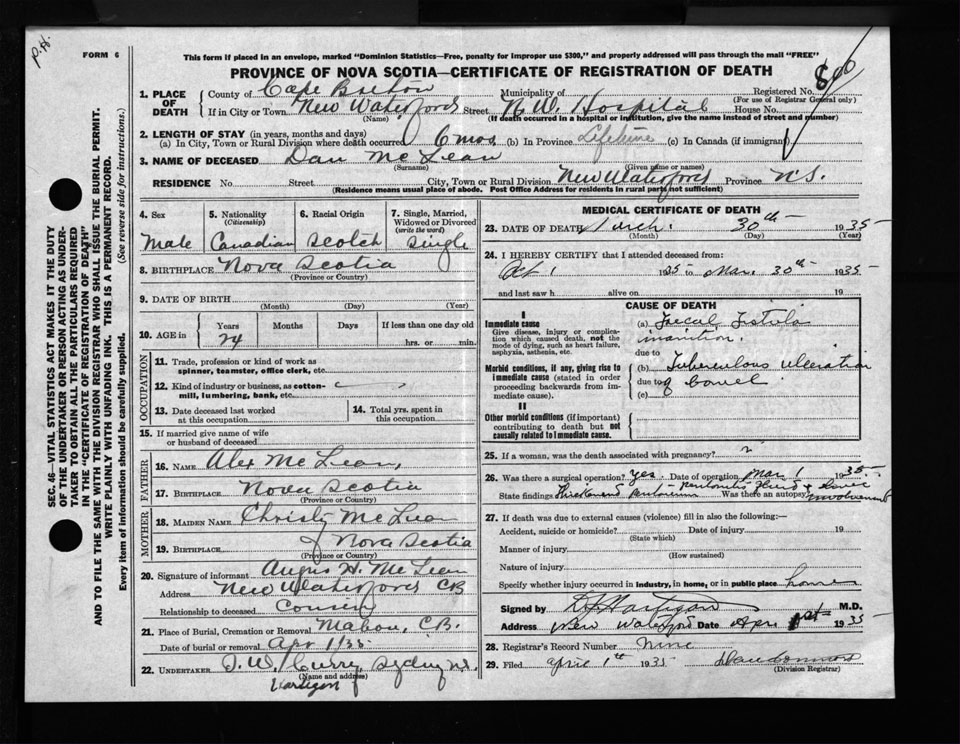 P.H.
FORM 6
This form if placed in an envelope, marked "Dominion Statistics—Free, penalty for improper use $300," and properly addressed will pass through the mail "FREE"
PROVINCE OF NOVA SCOTIA—CERTIFICATE OF REGISTRATION OF DEATH
1. PLACE OF DEATH County of Cape Breton Municipality of Registered No.
(For use of Registrar General only)
If in City or Town New Waterford Street N.W. Hospital House No.
(Name) (If death occurred in a hospital or institution, give the name instead of street and number)
2. LENGTH OF STAY (in years, months and days)
(a) In City, Town or Rural Division where death occurred 6 mos. (b) In Province Lifetime (c) In Canada (if immigrant)
3. NAME OF DECEASED Dan McLean
(Surname) (Given name or names)
RESIDENCE No. Street City, Town or Rural Division New Waterford Province N.S.
(Residence means usual place of abode. Post Office Address for residents in rural parts not sufficient)
4. Sex 5. Nationality (Citizenship) 6. Racial Origin 7. Single, Married, Widowed or Divorced (write the word)
Male Canadian Scotch Single
8. BIRTHPLACE Nova Scotia
(Province or Country)
9. DATE OF BIRTH
(Month) (Day) (Year)
10. AGE in Years Months Days If less than one day old
74 hrs. or min.
OCCUPATION
11. Trade, profession or kind of work as spinner, teamster, office clerk, etc.
12. Kind of industry or business, as cotton-mill, lumbering, bank, etc.
13. Date deceased last worked at this occupation
14. Total yrs. spent in this occupation
15. If married give name of wife or husband of deceased
FATHER
16. NAME Alex McLean,
17. BIRTHPLACE Nova Scotia
(Province or Country)
MOTHER
18. MAIDEN NAME Christy McLean
19. BIRTHPLACE Nova Scotia
(Province or Country)
20. Signature of informant Angus H. McLean
Address New Waterford CB
Relationship to deceased Cousin
21. Place of Burial, Cremation or Removal Mabou, C.B.
Date of burial or removal Apr 1/35
22. UNDERTAKER D.W. Curry Sydney N.S.
(Name and address)
Hartigan
MEDICAL CERTIFICATE OF DEATH
23. DATE OF DEATH March 30th 1935
(Month) (Day) (Year)
24. I HEREBY CERTIFY that I attended deceased from:
Oct 1 1935 to Mar. 30th 1935
and last saw h alive on 19
CAUSE OF DEATH
I
Immediate cause
Give disease, injury or complication which caused death, not the mode of dying, such as heart failure, asphyxia, asthenia, etc.
(a) Faecal Fistula
inanition.
due to
Morbid conditions, if any, giving rise to immediate cause (stated in order proceeding backwards from immediate cause).
(b) Tuberculous ulceration
due to of bowel
(c)
II
Other morbid conditions (if important) contributing to death but not causally related to immediate cause.
25. If a woman, was the death associated with pregnancy?
26. Was there a surgical operation? yes. Date of operation Mar 1 1935
State findings Thickened peritoneum - peritonitis fluid & bowel involvement
Was there an autopsy?
27. If death was due to external causes (violence) fill in also the following:—
Accident, suicide or homicide? Date of injury 19
(State which)
Manner of injury
(How sustained)
Nature of injury
Specify whether injury occurred in industry, in home, or in public place home
Signed by D. Hartigan M.D.
Address New Waterford Date Apr 1st 1935
28. Registrar's Record Number Nine
29. Filed April 1st 1935
(Division Registrar)
SEC. 46—VITAL STATISTICS ACT MAKES IT THE DUTY OF THE UNDERTAKER OR PERSON ACTING AS UNDERTAKER TO OBTAIN ALL THE PARTICULARS REQUIRED IN THE "CERTIFICATE OF REGISTRATION OF DEATH" AND TO FILE THE SAME WITH THE DIVISION REGISTRAR WHO SHALL ISSUE THE BURIAL PERMIT.
WRITE PLAINLY WITH UNFADING INK. THIS IS A PERMANENT RECORD.
Every item of information should be carefully supplied. (See reverse side for instructions.)